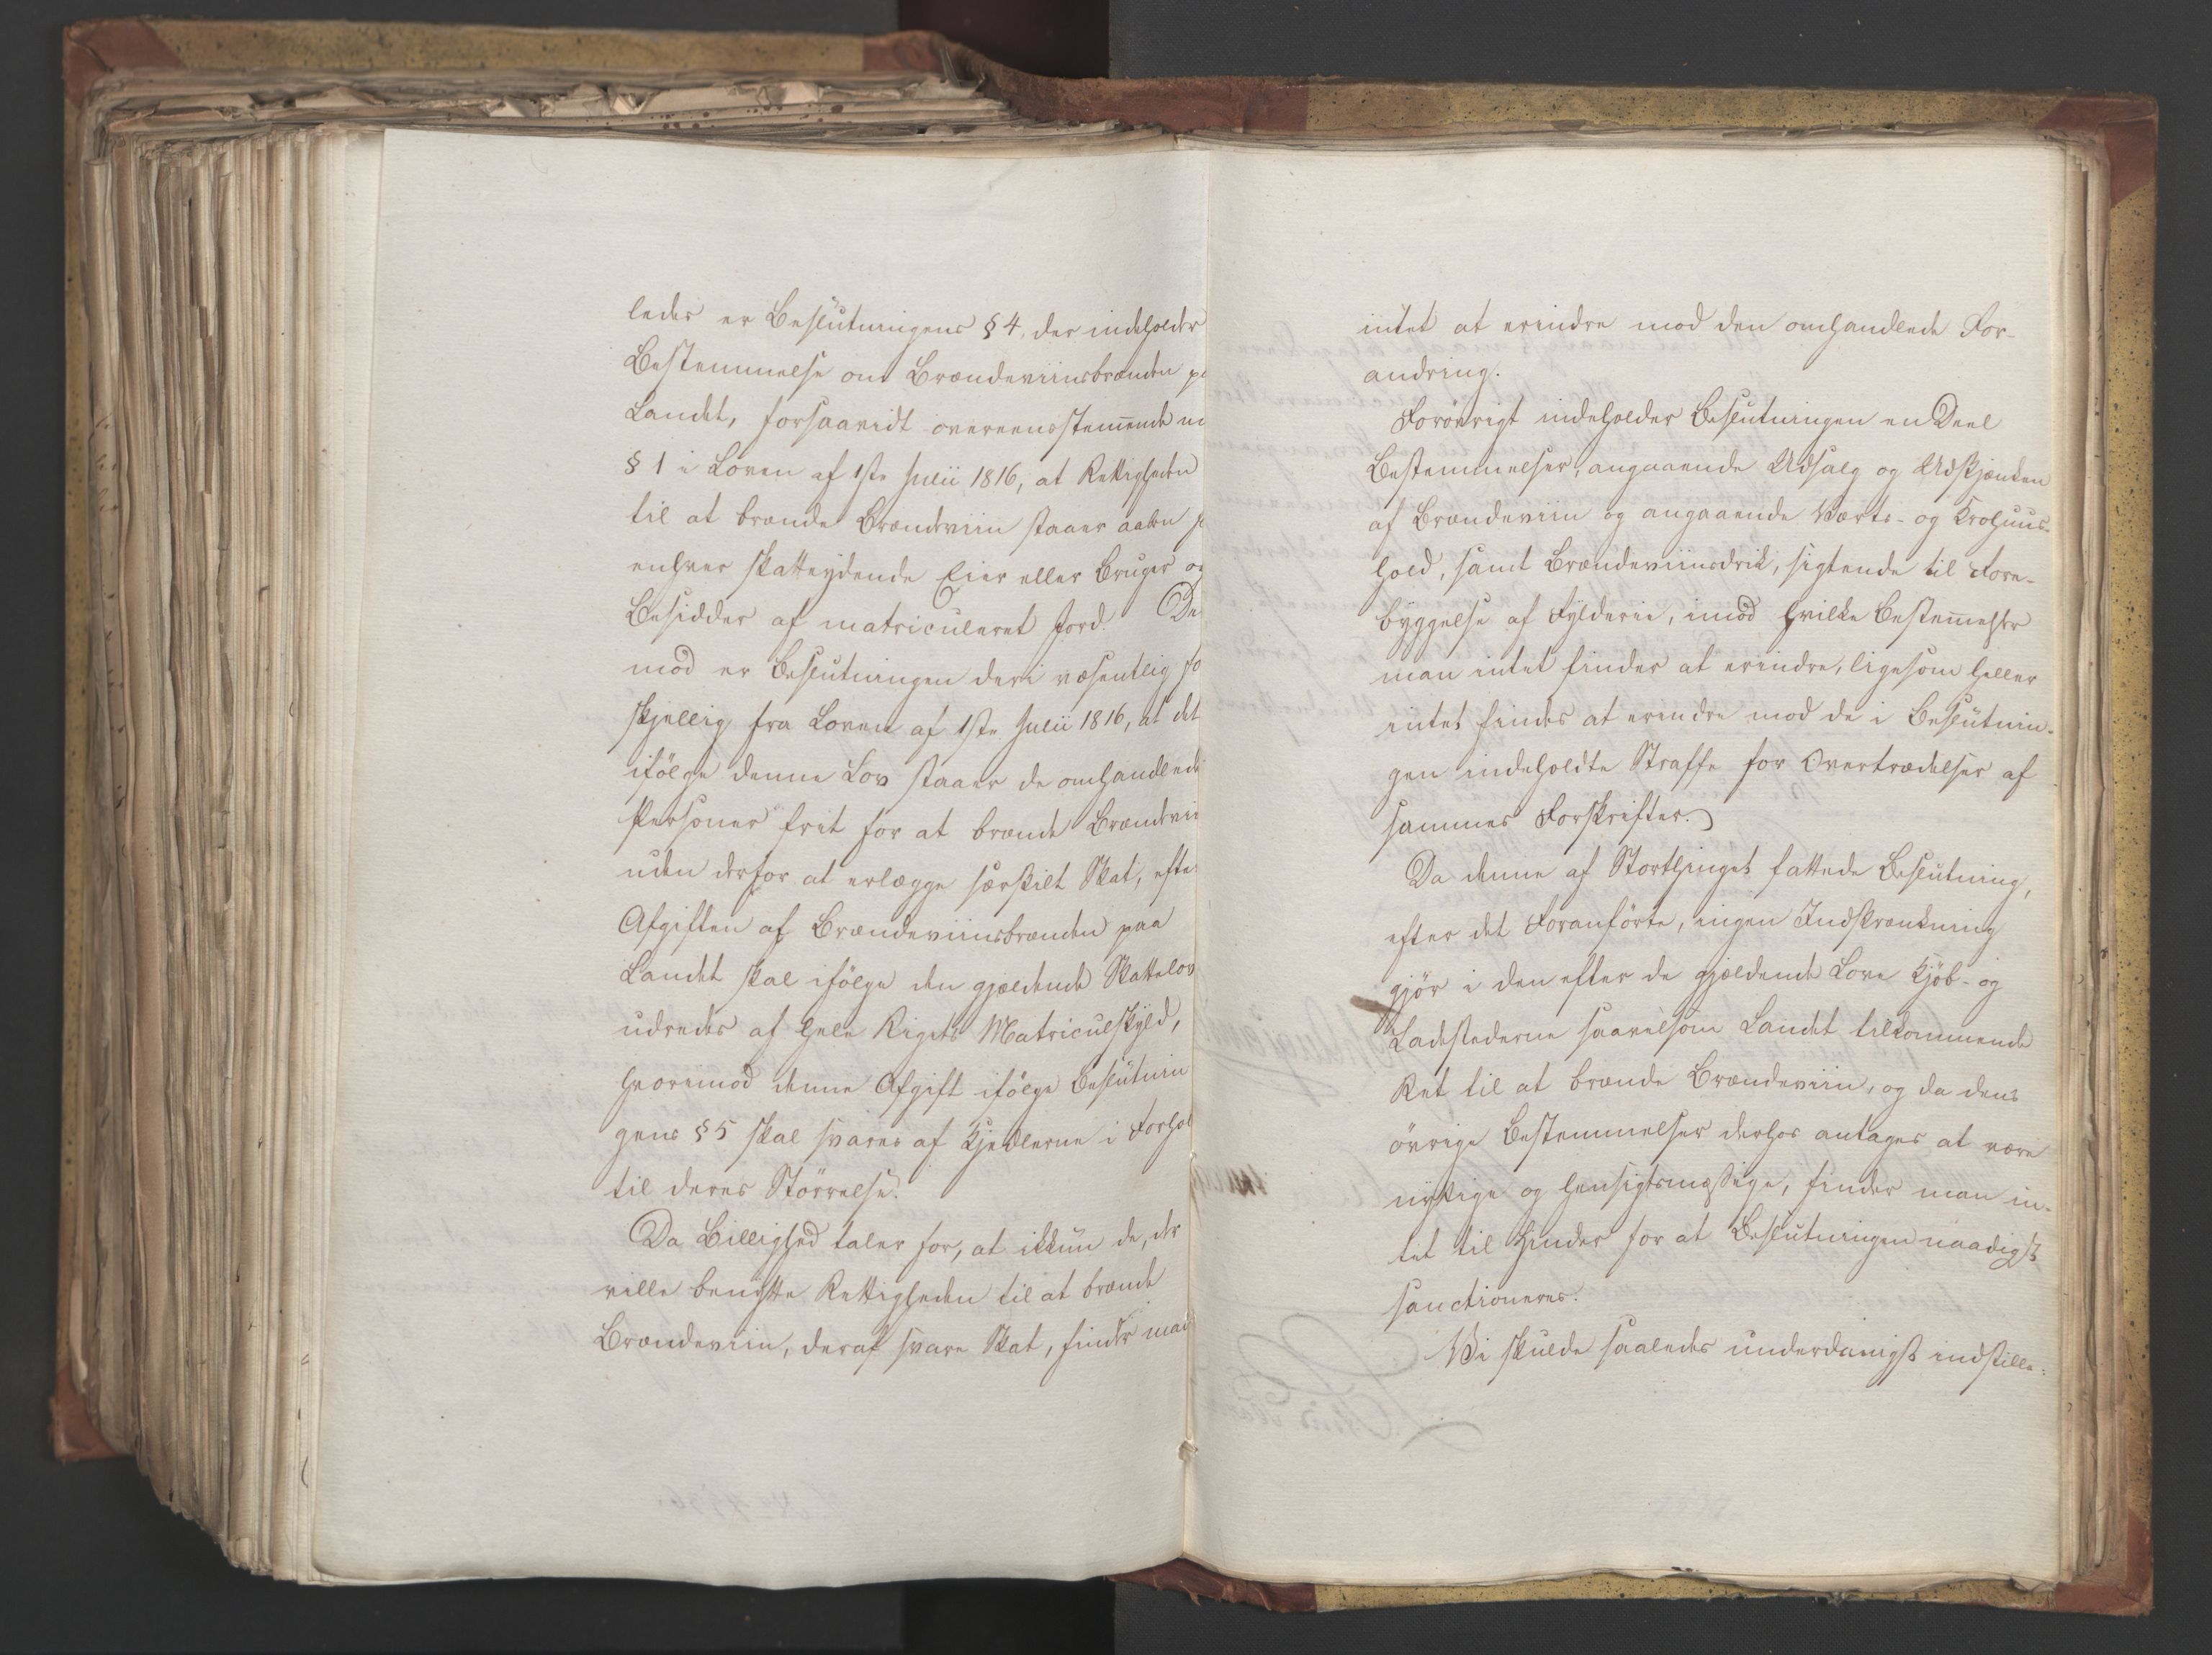 ledes er Beslutningens § 4, der indeholder
Bestemmelse om Brændeviinsbrænden p
Landet, forsaavidt overeensstem̅ende m
§ 1 i Loven af 1ste Julii 1816, at Rettigheden
til at brænde Brændeviin staaer aaben f
enhver skatteydende Eier eller Bruger og
Besidder af matriculeret Jord. De
mod er Beslutningen deri væsentlig fo
skjellig fra Loven af 1ste Julii 1816, at det
ifölge denne Lov staaer de omhandlede
Personer frit for at brænde Brændevii
uden derfor at erlægge særskilt Skat, efte
Afgiften af Brændeviinsbrænden paa
Landet skal ifölge den gjældende Skattelov
udredes af hele Rigets Matriculskyld,
hvorimod denne Afgift ifölge Beslutnin
gens § 5 skal svares af Kjedlerne i Forhol
til deres Störrelse.
Da Billighed taler for, at ikkun de, der
ville benytte Rettigheden til at brænde
Brændeviin, deraf svare Skat, finder man
intet at erindre mod den omhandlede For-
andring.
Forövrigt indeholder Beslutningen en Deel
Bestemmelser, angaaende Udsalg og Udskjænken
af Brændeviin og angaaende Værts- og Krohuus-
hold, samt Brændeviinsdrik, sigtende til Fore-
byggelse af Fylderie, imod hvilke Bestem̅elser
man intet finder at erindre, ligesom heller
intet findes at erindre mod de i Beslutnin-
gen indeholdte Straffe for Overtrædelser af
sammes Forskrifter.
Da denne af Storthinget fattede Beslutning,
efter det Foranförte, ingen Indskrænkning
gjör i den efter de gjældende Love Kjöb- og
Ladestederne saavelsom Landet tilkommende
Ret til at brænde Brændeviin, og da dens
övrige Bestemmelser derhos antages at være
nyttige og hensigtsmæssige, finder man in-
tet til Hinder for at Beslutningen naadigst
sanctioneres.
Vi skulde saaledes underdanigst indstille: